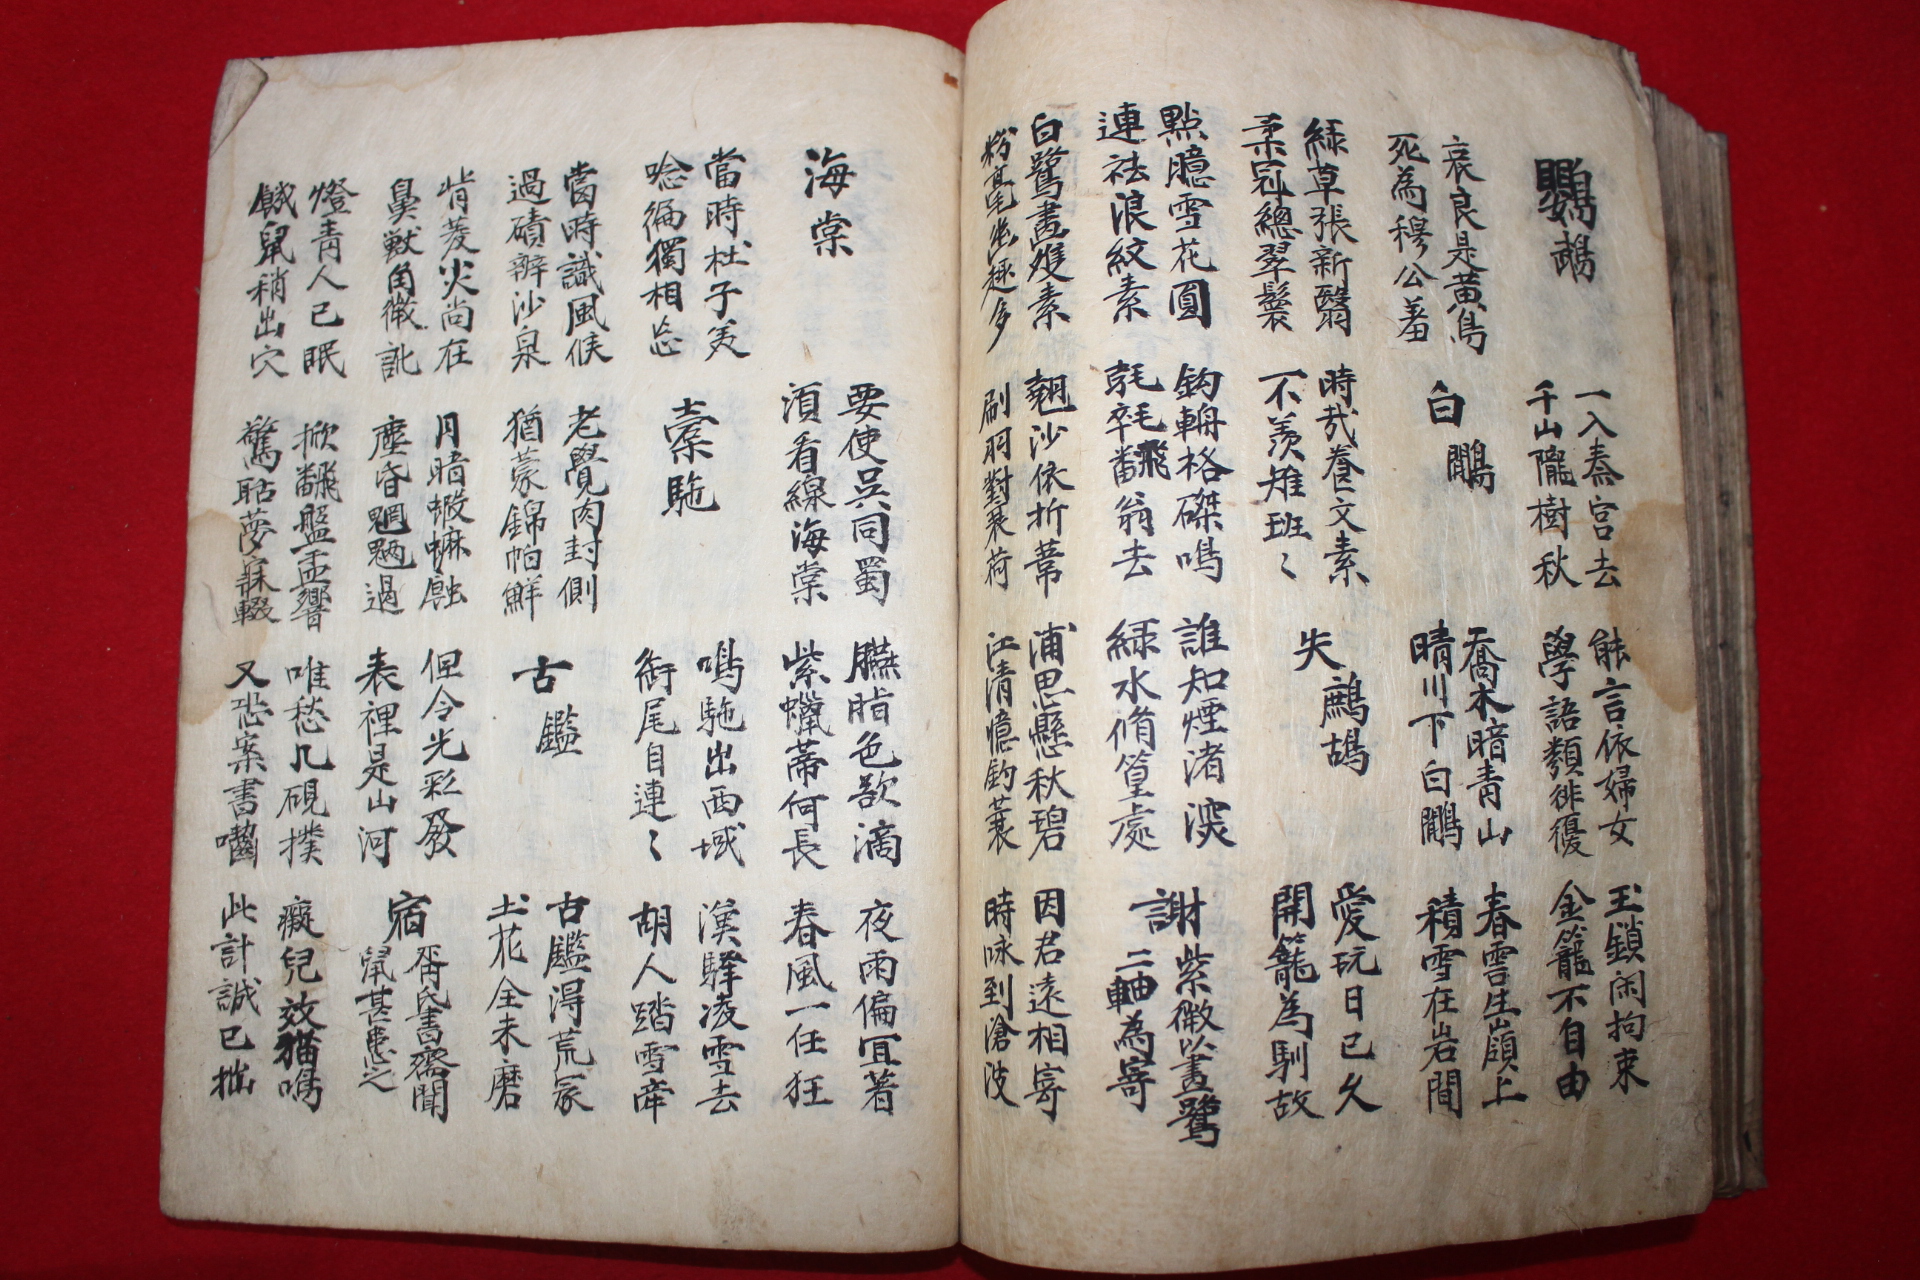 鸚鵡
一入秦宮去
千山隴樹秋
能言依婦女
學語類俳優
玉鎖閑拘束
金籠不自由
哀良是黃鳥
死為穆公羞
白鷴
喬木暗青山
晴川下白鷴
春雲生嶺上
積雪在岩間
綠草張新翳
柔冠總翠鬟
時哉養文素
不羨雉班〻
失鷓鴣
愛玩日已久
開籠為馴故
點臆雪花圓
連袪浪紋素
鈎輈格磔鳴
飜翁去
誰知煙渚深
綠水脩篁處
謝紫微以畫鷺
二軸為寄
白鷺畫雙素
粉毫幽趣多
翹沙依折葦
刷羽對衰荷
浦思懸秋碧
江清憶釣蓑
因君遠相寄
時咏到滄波
海棠
要使吳同蜀
須看線海棠
臙脂色欲滴
紫蠟蒂何長
夜雨偏宜著
春風一任狂
當時杜子美
唸徧獨相忘
橐駞
鳴駞出西域
銜尾自連〻
漢驛凌雪去
胡人踏雪牽
當時識風候
過磧辨沙泉
老覺肉封側
猶蒙錦帕鮮
古鑑
古鑑得荒冢
土花全未磨
背菱火尚在
鼻獸角微訛
月暗蝦蟆蝕
塵昏魍魎過
但令光彩發
表裡是山河
宿胥氏書齋聞
鼠甚患之
燈青人已眠
饑鼠稍出穴
掀飜盤盂響
驚聒夢寐輟
唯愁几硯撲
又恐案書囓
癡兒效猫鳴
此計誠已拙